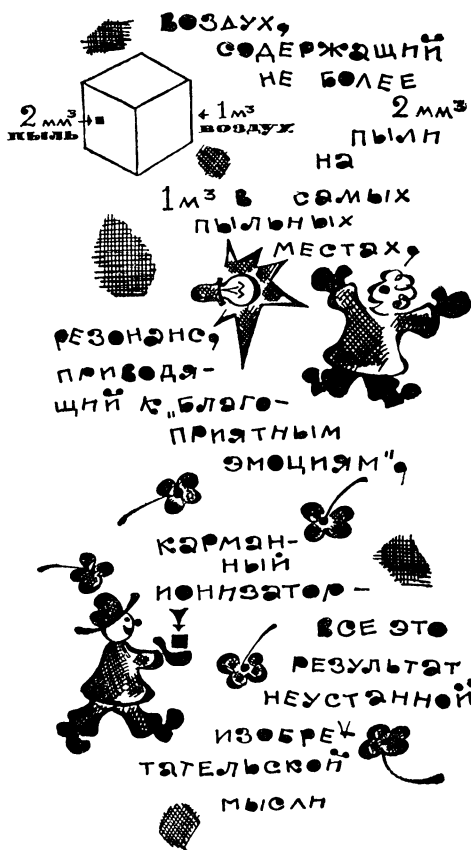 ВОЗДУХ,
СОДЕРЖАЩИЙ
НЕ БОЛЕЕ
2 мм³
ПЫЛЬ
1 м³
ВОЗДУХ
2 мм³
ПЫЛИ
НА
1 м³ В САМЫХ
ПЫЛЬНЫХ
МЕСТАХ,
РЕЗОНАНС,
ПРИВОДЯ-
ЩИЙ К „БЛАГО-
ПРИЯТНЫМ
ЭМОЦИЯМ",
КАРМАН-
НЫЙ
ИОНИЗАТОР-
ВСЕ ЭТО
РЕЗУЛЬТАТ
НЕУСТАННОЙ
ИЗОБРЕ
ТАТЕЛЬСКОЙ
МЫСЛИ